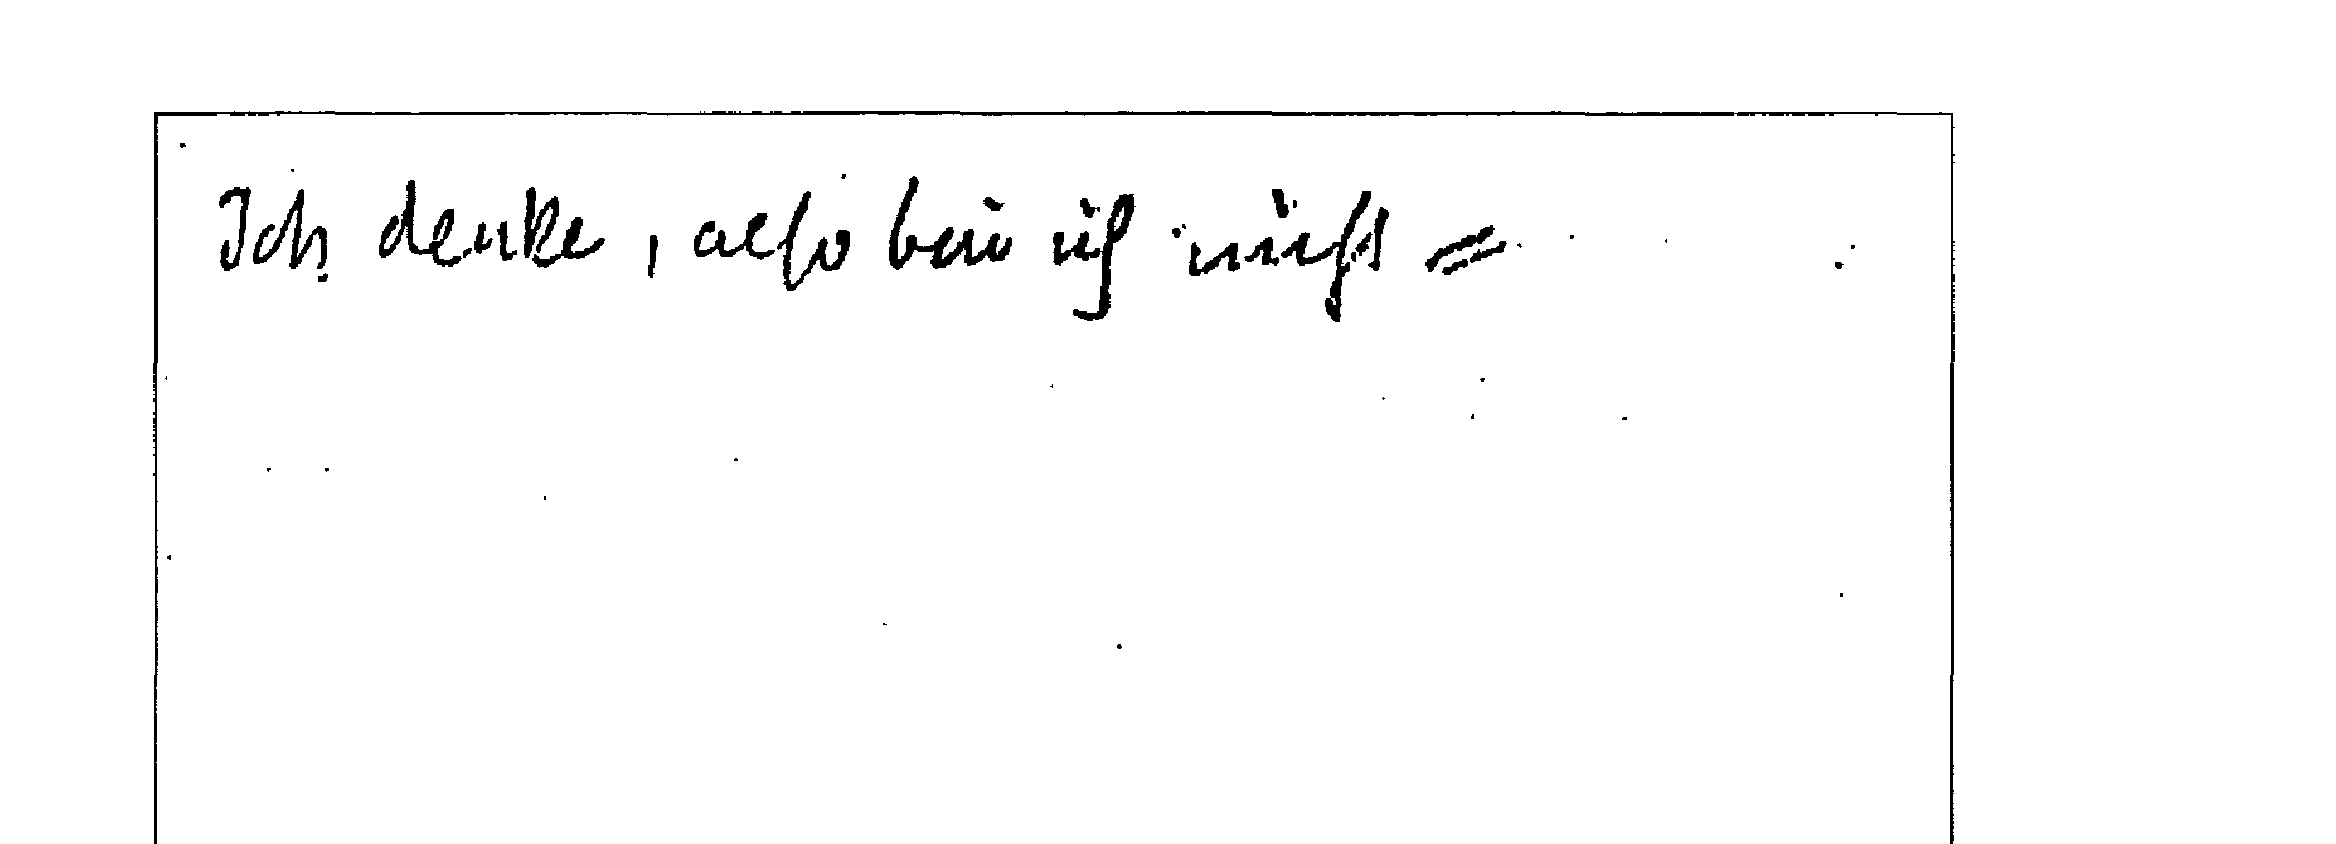 Ich denke, also bin ich nicht =